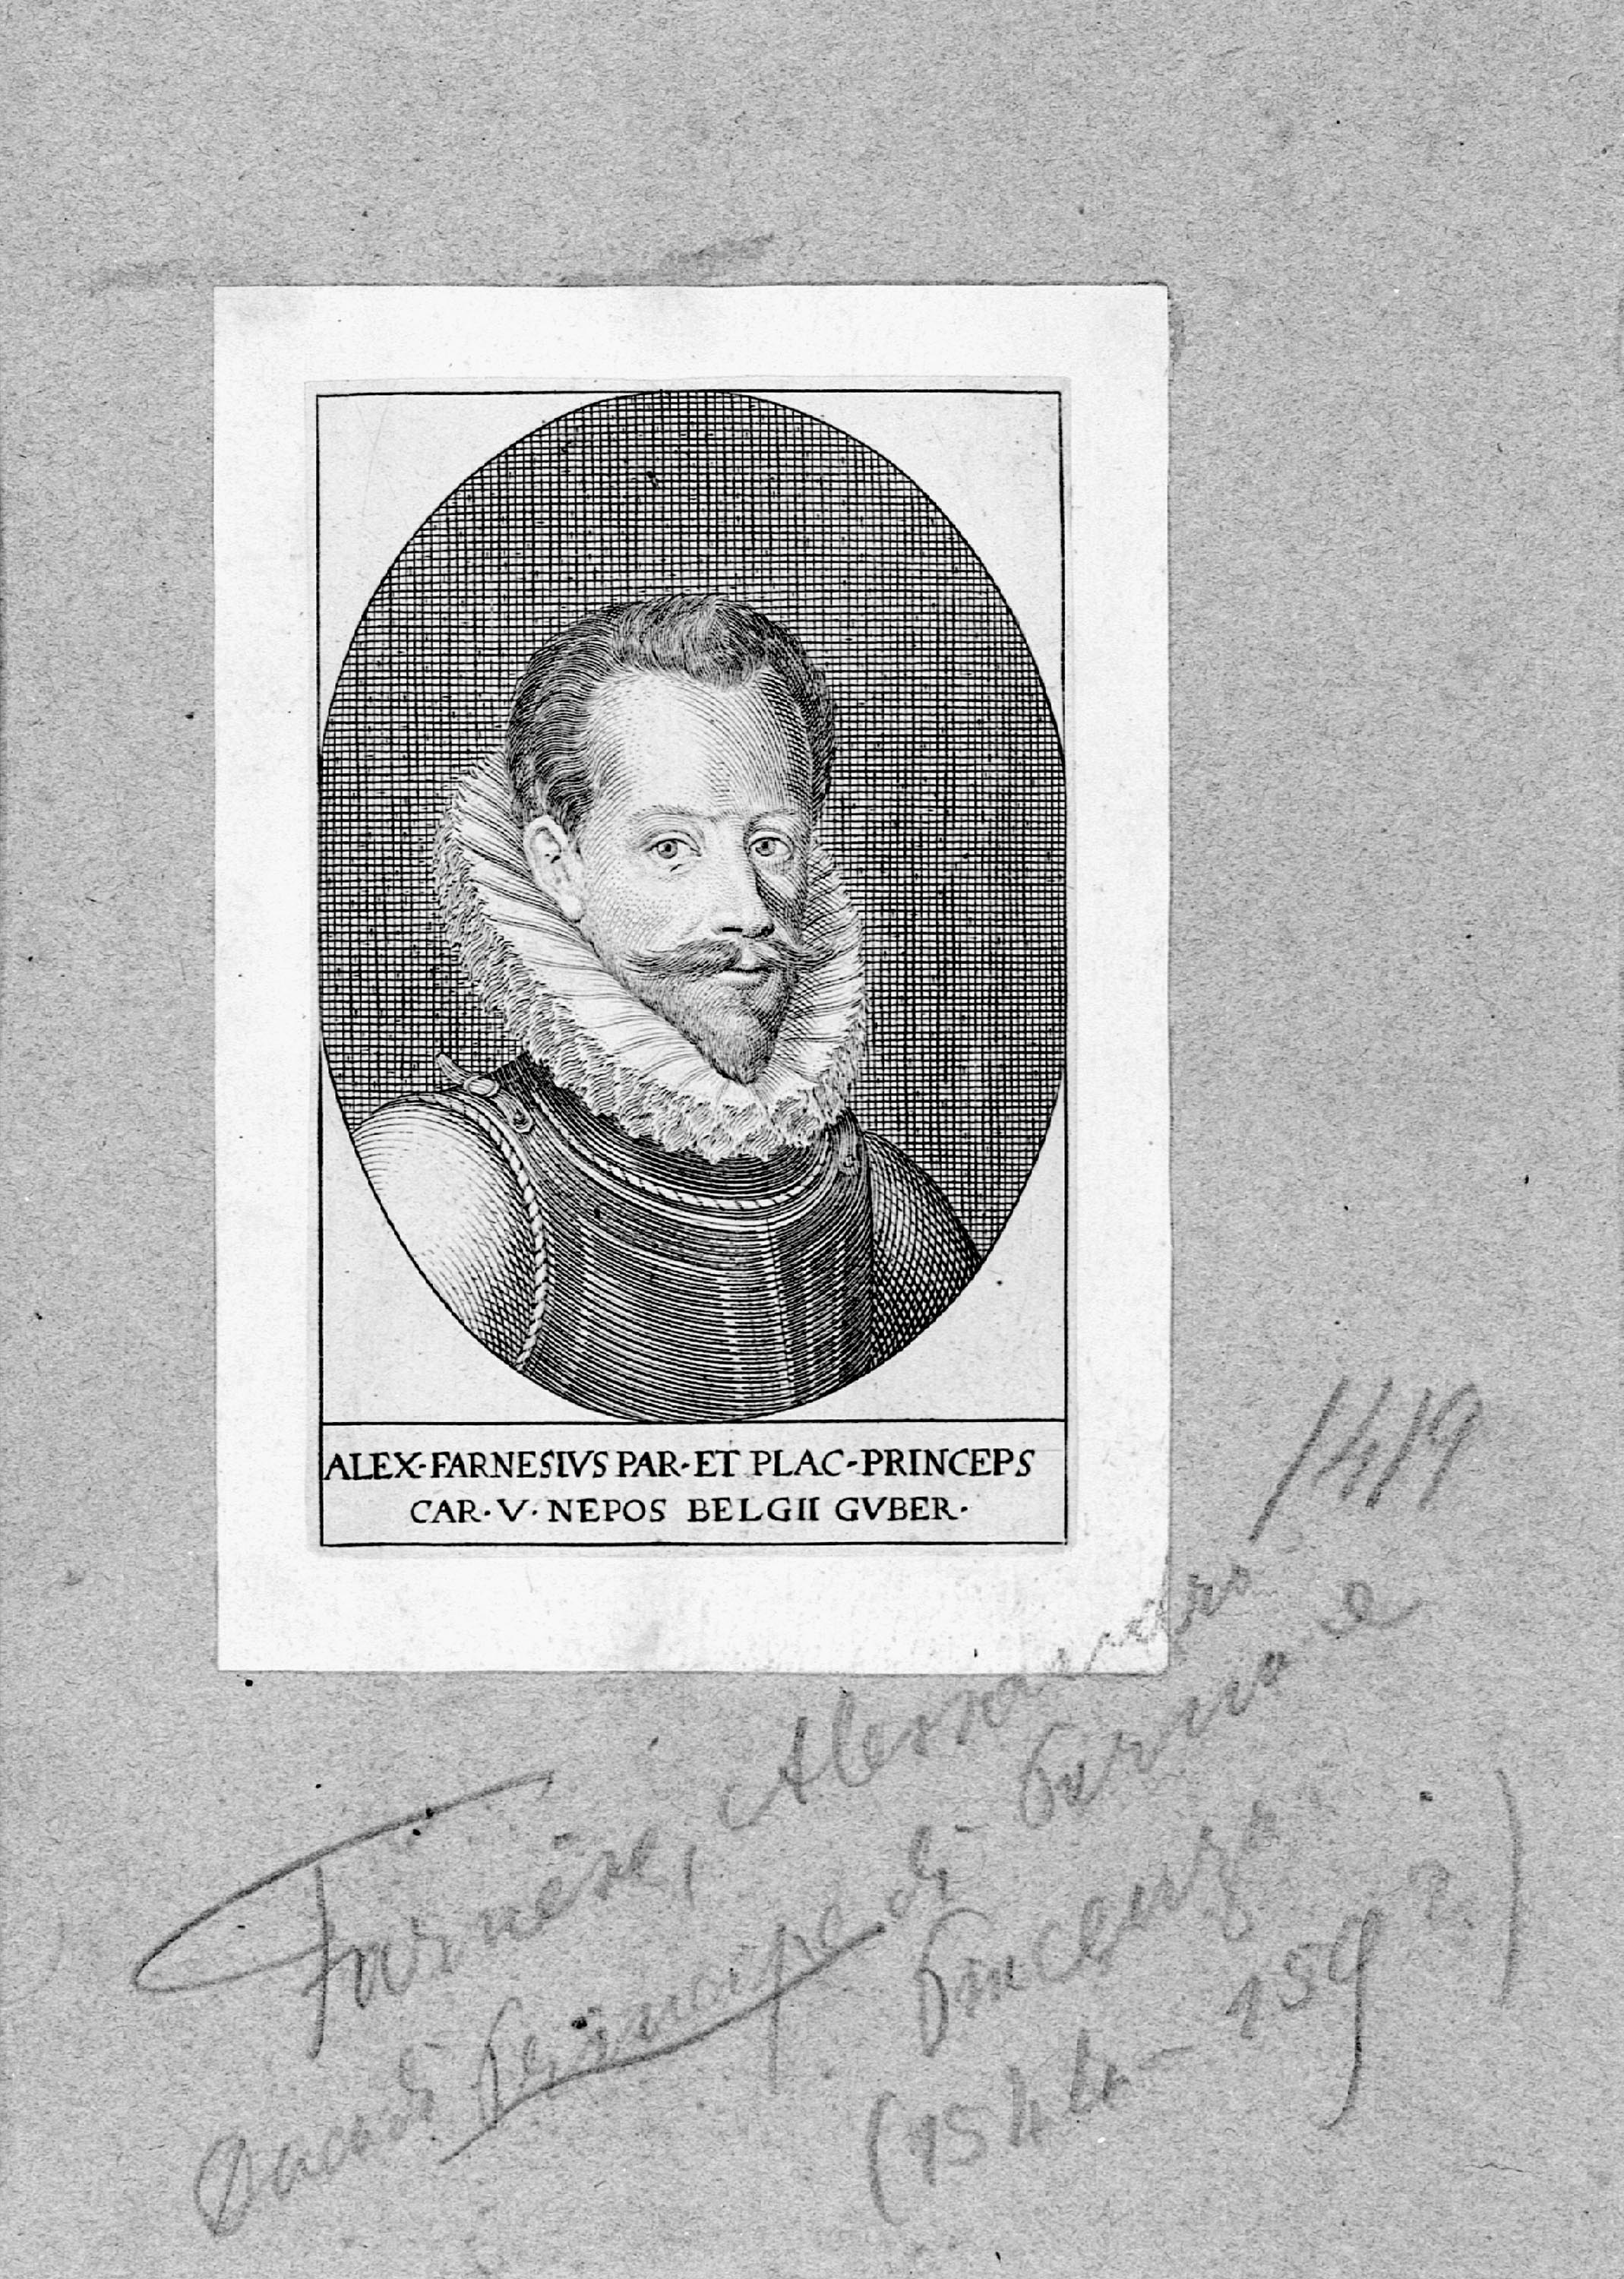 ALEX·FARNESIVS PAR·ET PLAC·PRINCEPS
CAR·V·NEPOS BELGII GVBER·
1419
Farnese, Alessandro
Duca di Principe di Parma e
Piacenza
(1544-1592)